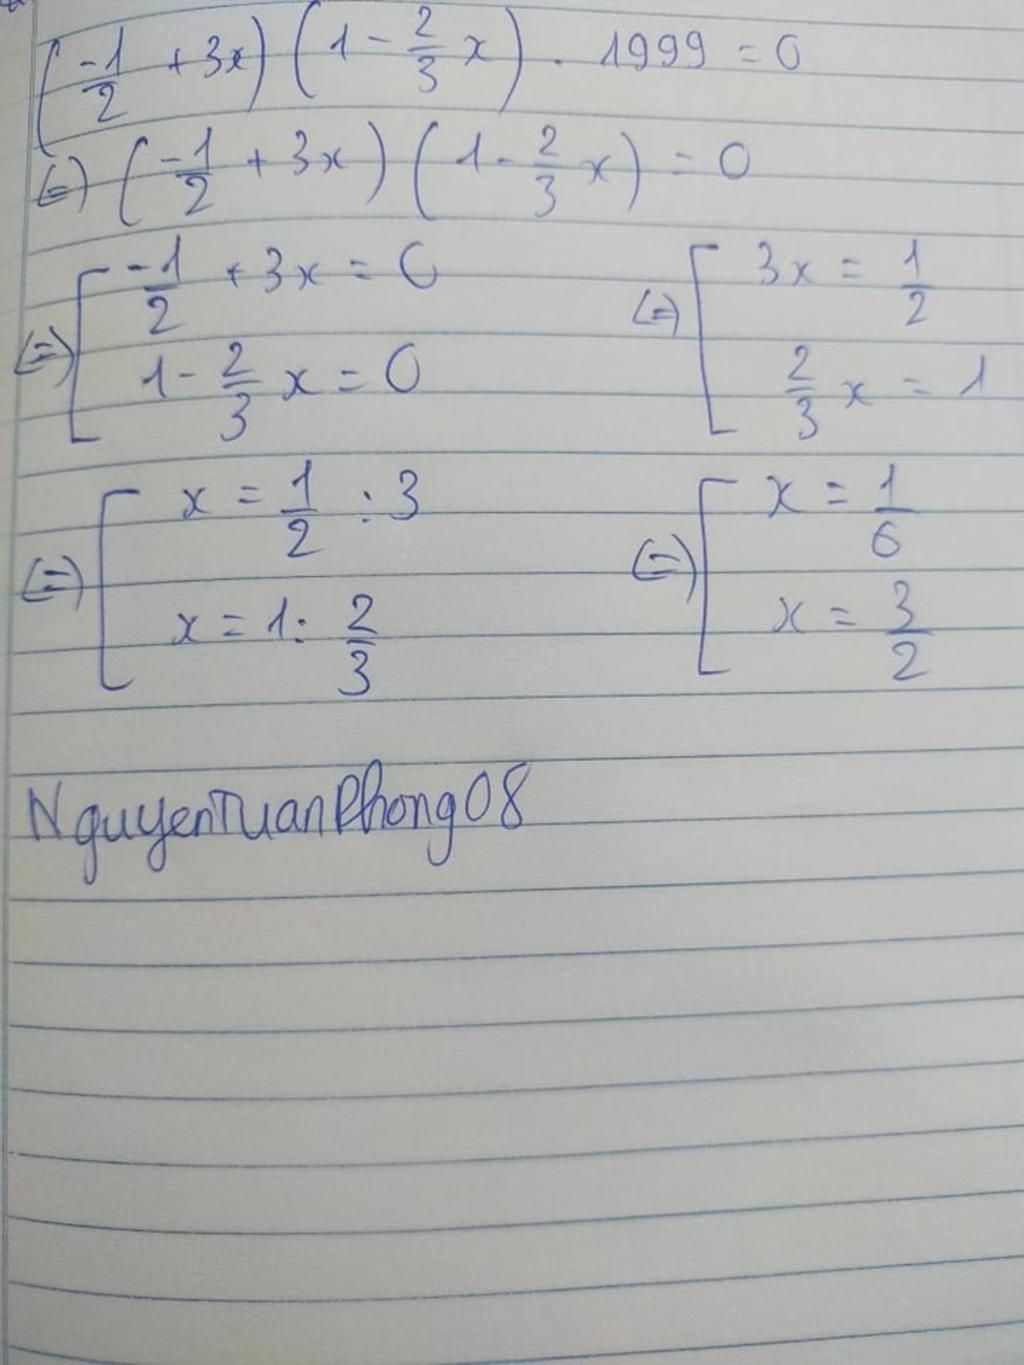 (-1/2 + 3x) (1 - 2/3 x) . 1999 = 0
(=) (-1/2 + 3x) (1 - 2/3 x) = 0
(=) [ -1/2 + 3x = 0
1 - 2/3 x = 0
(=) [ 3x = 1/2
2/3 x = 1
(=) [ x = 1/2 : 3
x = 1 : 2/3
(=) [ x = 1/6
x = 3/2
NguyenTuanPhong08